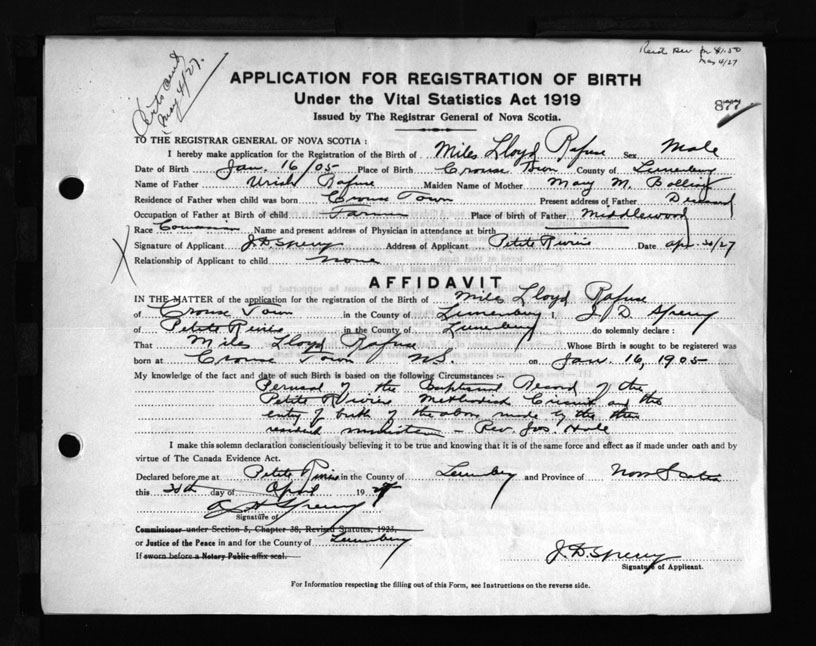 Certs and
May 4/27.
Recd Rev for $1.50
May 4/27
APPLICATION FOR REGISTRATION OF BIRTH
Under the Vital Statistics Act 1919
877
Issued by The Registrar General of Nova Scotia.
TO THE REGISTRAR GENERAL OF NOVA SCOTIA :
I hereby make application for the Registration of the Birth of Miles Lloyd Rafuse Sex Male
Date of Birth Jan. 16/05 Place of Birth Crouse Town County of Lunenburg
Name of Father Uriah Rafuse Maiden Name of Mother Mary M. Bolling
Residence of Father when child was born Crouse Town Present address of Father Deceased
Occupation of Father at Birth of child Farmer Place of birth of Father Middlewood
Race Name and present address of Physician in attendance at birth
Signature of Applicant J.D. Sperry Address of Applicant Petite Riviere Date Apr. 30/27
Relationship of Applicant to child None
AFFIDAVIT
IN THE MATTER of the application for the registration of the Birth of Miles Lloyd Rafuse
of Crouse Town in the County of Lunenburg I, J. D. Sperry
of Petite Riviere in the County of Lunenburg do solemnly declare :
That Miles Lloyd Rafuse Whose Birth is sought to be registered was
born at Crouse Town N.S. on Jan. 16, 1905
My knowledge of the fact and date of such Birth is based on the following Circumstances :—
Perusal of the Baptismal Record of the
Petite Riviere Methodist Circuit and the
entry of birth of the above made by the then
resident minister – Rev. Jos. Hale
I make this solemn declaration conscientiously believing it to be true and knowing that it is of the same force and effect as if made under oath and by
virtue of The Canada Evidence Act.
Declared before me at Petite Riviere in the County of Lunenburg and Province of Nova Scotia
this 30th day of April 1927
Sperry
Signature of
Commissioner under Section 5, Chapter 38, Revised Statutes, 1923,
or Justice of the Peace in and for the County of Lunenburg
If sworn before a Notary Public affix seal.
J. D. Sperry
Signature of Applicant.
For Information respecting the filling out of this Form, see Instructions on the reverse side.